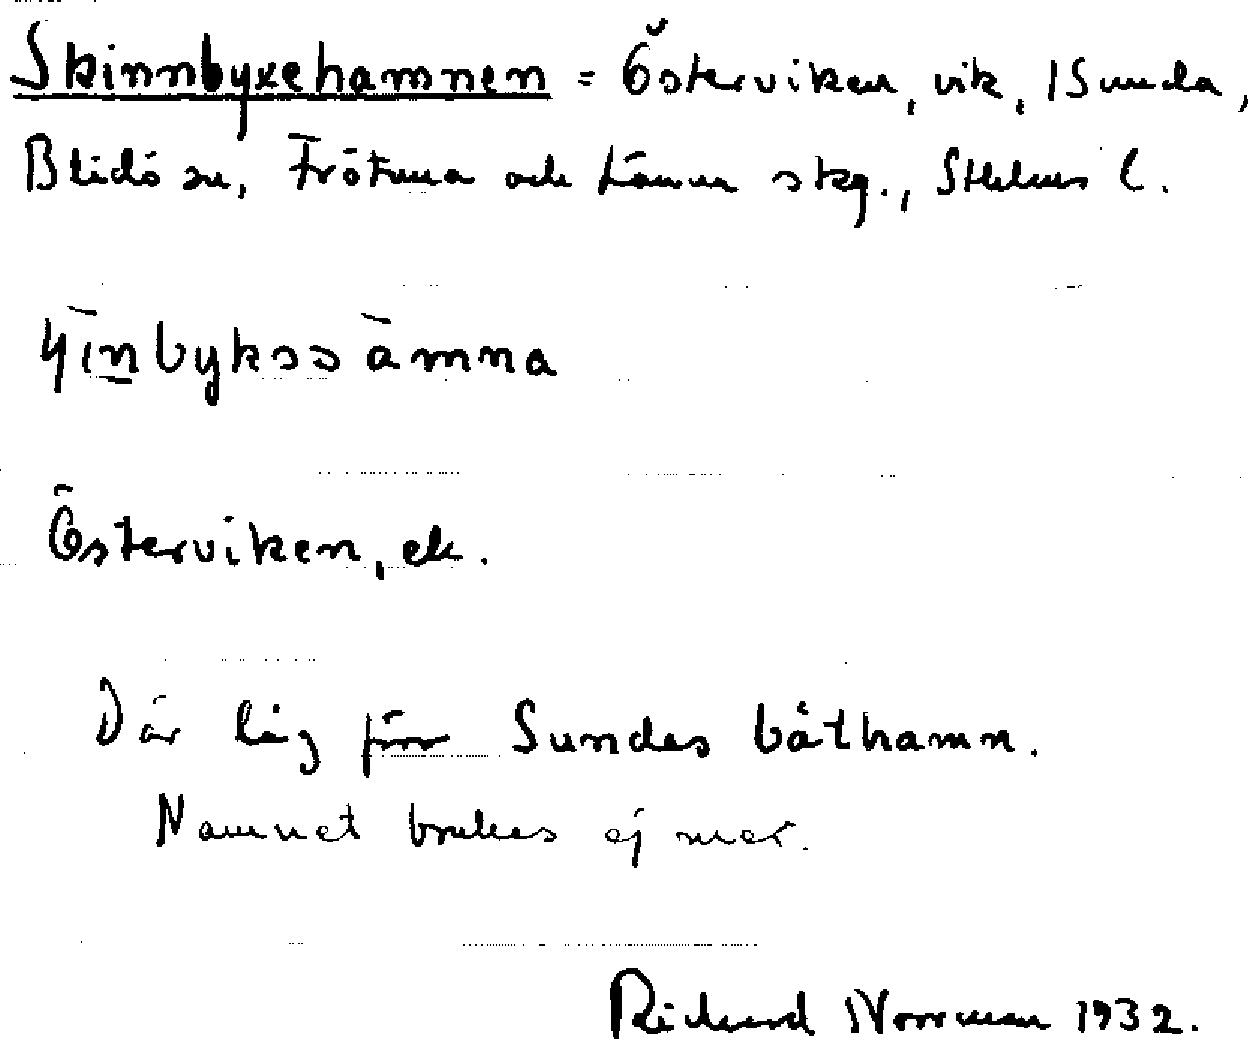 Skinnbyxehamnen = Österviken, vik, 1 Sunda,
Blidö sn, Frötuna och Länna skg., Sthlms l.
Österviken, ek.
Där låg förr Sundas båthamn.
Namnet brukas ej mer.
Richard Norrman 1932.